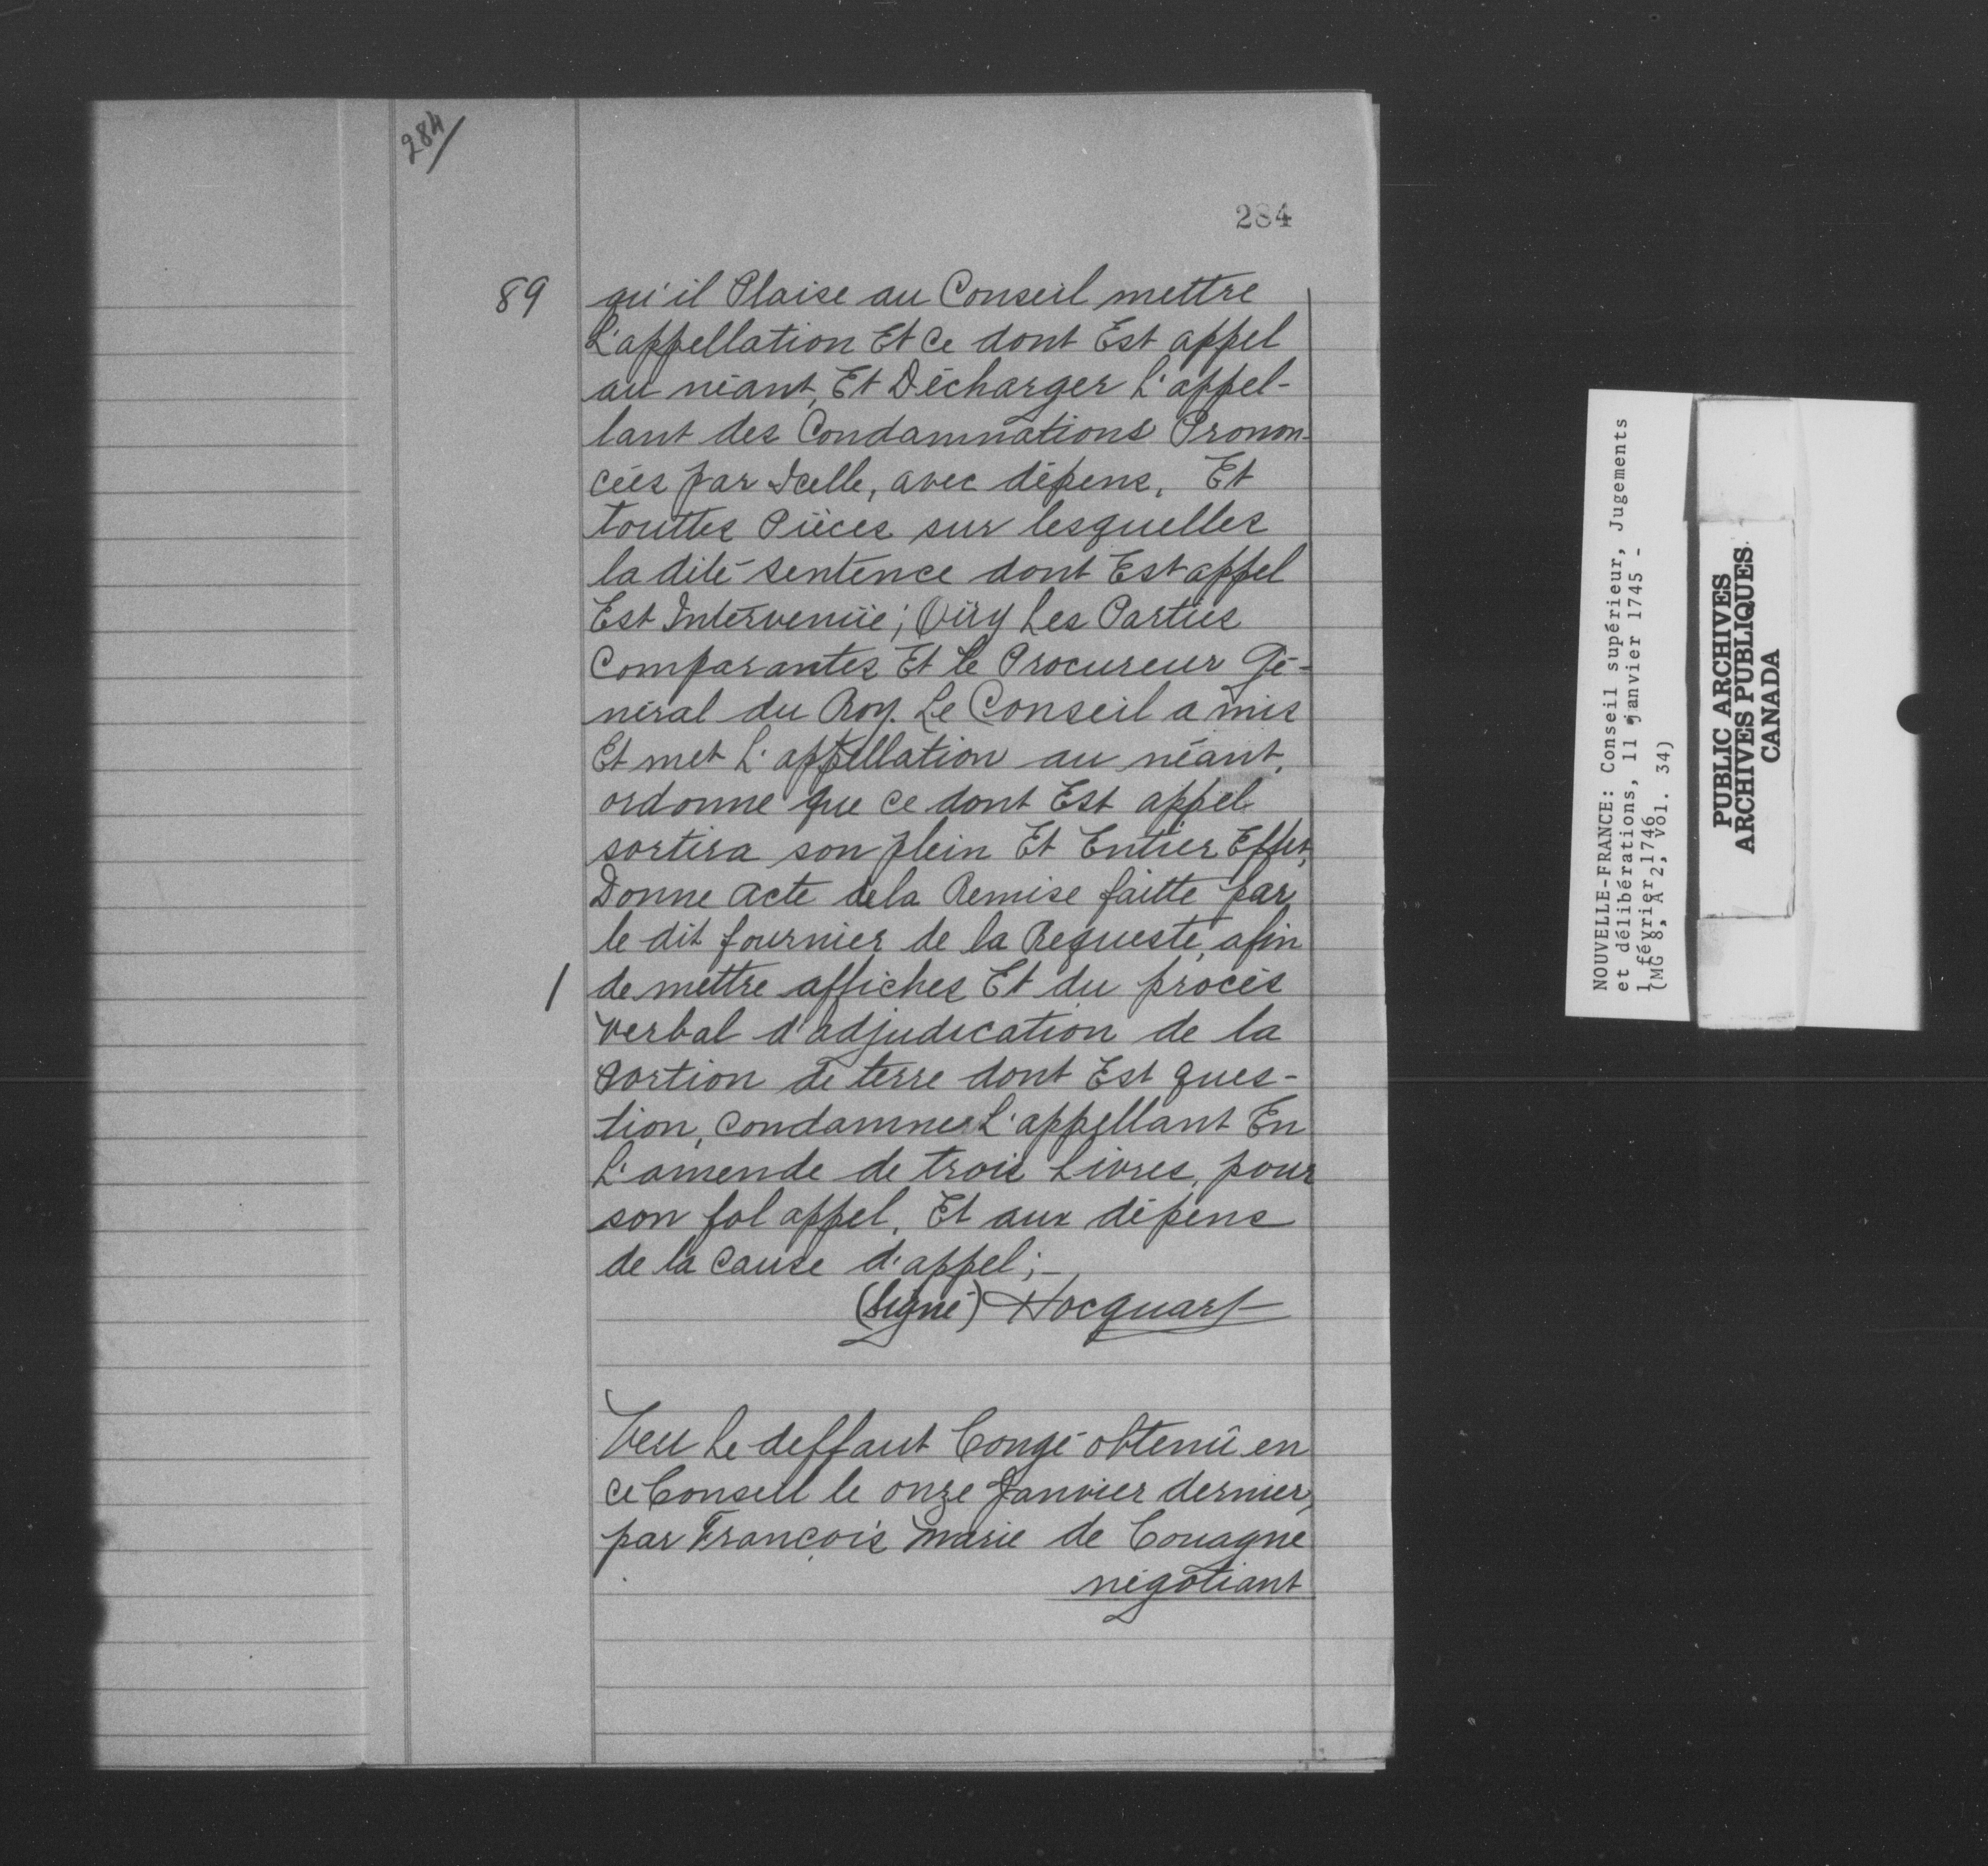 284
284
89
qu'il Plaise au Conseil mettre
L'appellation Et Ce dont Est appel
au néant, Et Décharger L'appel-
lant des Condamnations Pronon-
cées par Icelle, avec dépens, Et
touttes Pièces sur lesquelles
la dite sentence dont Est appel
Est Intervenüe; Oüy Les Parties
Comparantes Et Le Procureur Gé-
néral du Roy. Le Conseil a mis
Et met L'appellation au néant,
ordonne que ce dont Est appel
sortira son plein Et Entier Effet,
Donne acte dela Remise faitte par
le dit fournier de la Requeste, afin
/ de mettre affiches Et du procès
verbal d'adjudication de la
Portion de terre dont Est ques-
tion, Condamne L'appellant En
L'amende de trois Livres, pour
son fol appel, Et aux dépens
de la Cause d'appel;-
(Signé) Hocquart
Veu Le deffaut Congé obtenû en
ce Conseil le onze Janvier dernier,
par François marie de Couagne
négotiant
NOUVELLE-FRANCE: Conseil supérieur, Jugements
et délibérations, 11 janvier 1745 -
1 février 1746
(MG 8, A 2, vol. 34)
PUBLIC ARCHIVES
ARCHIVES PUBLIQUES
CANADA